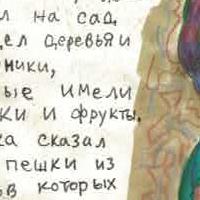 л на сад
ел деревья и
ники,
ые имели
ки и фрукты.
ка сказал
пешки из
ов которых